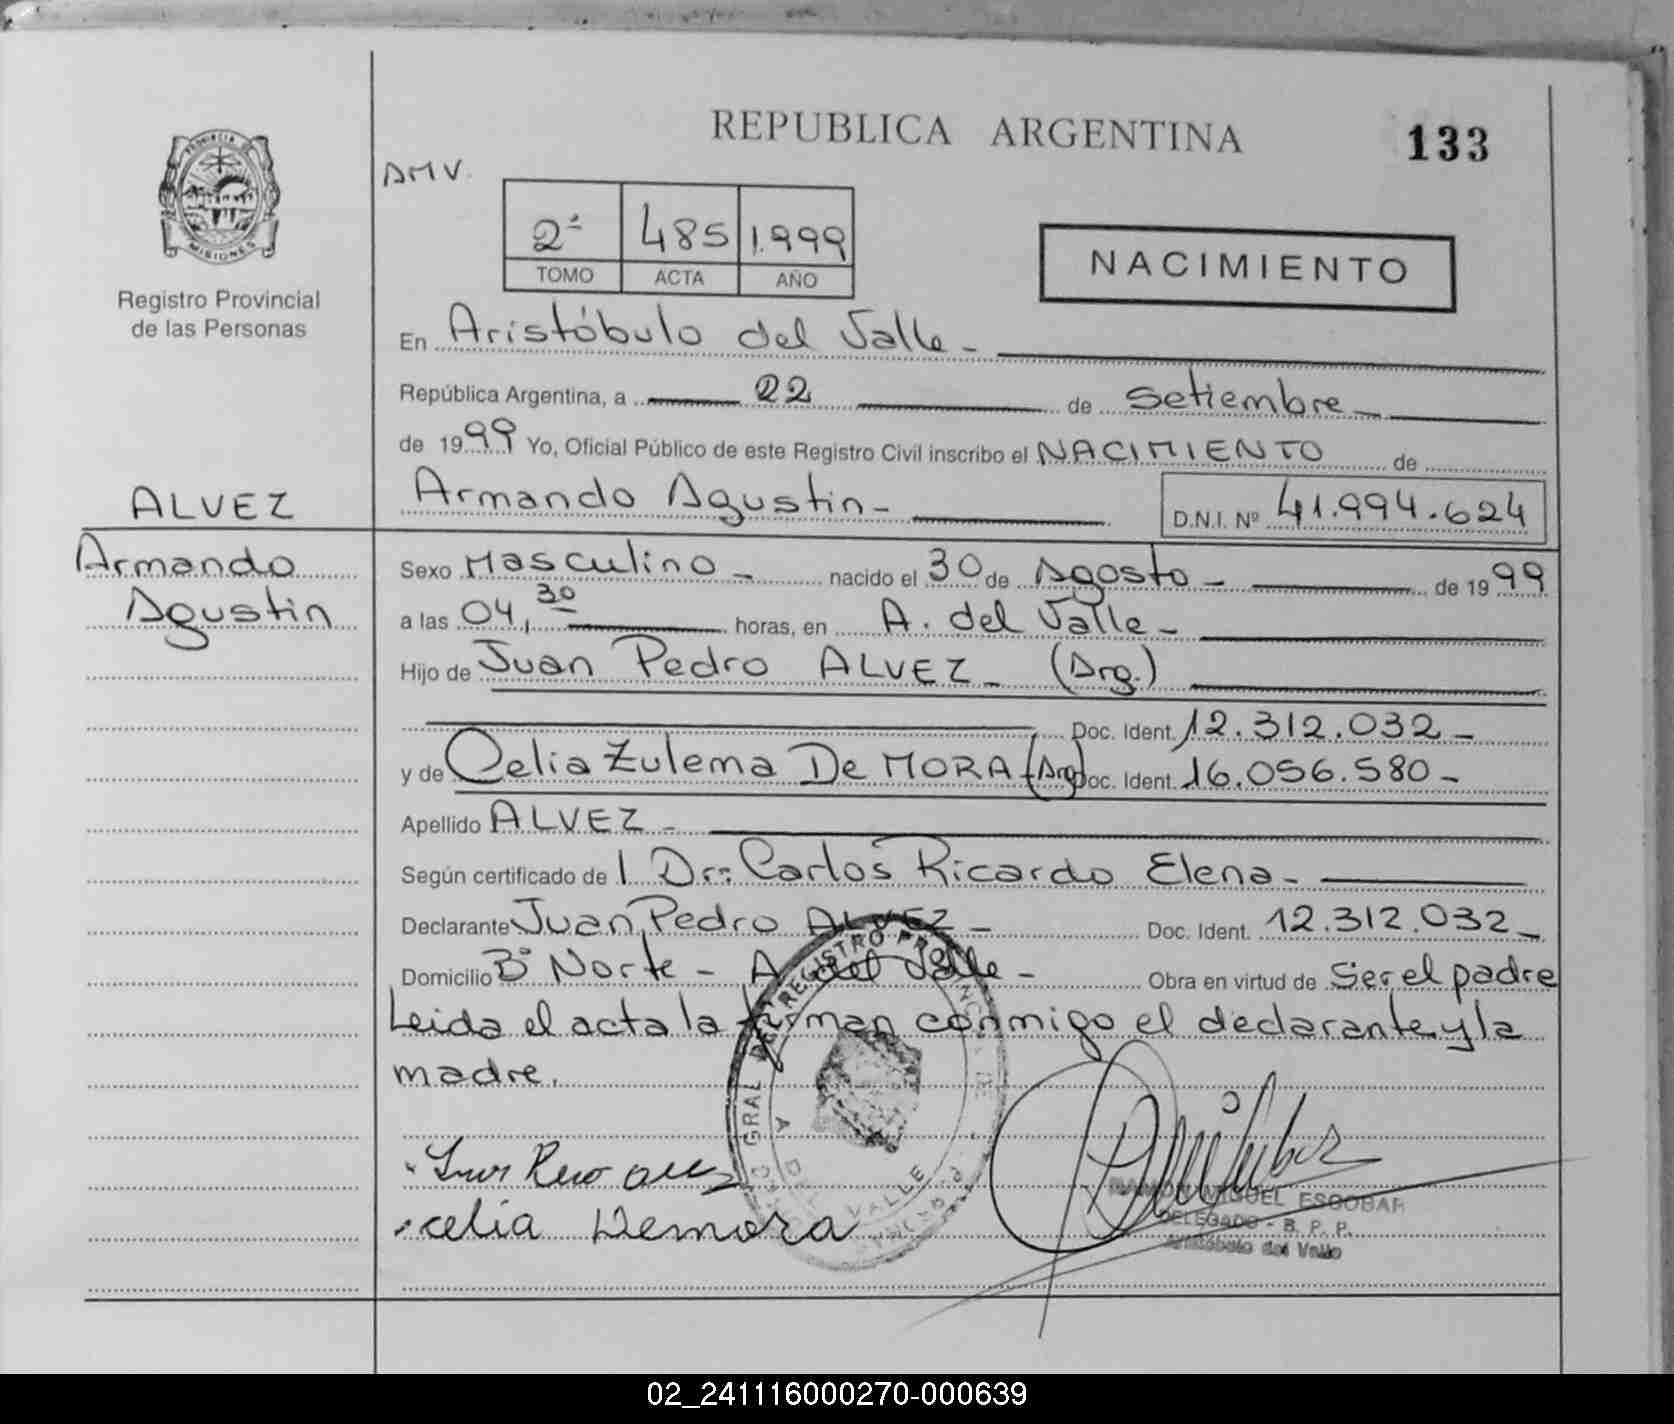 REPUBLICA ARGENTINA
133
PROVINCIA DE
MISIONES
Registro Provincial
de las Personas
AMV.
2ª 485 1.999
TOMO ACTA AÑO
NACIMIENTO
En Aristóbulo del Valle -
República Argentina, a 22 de Setiembre
de 1999 Yo, Oficial Público de este Registro Civil inscribo el NACIMIENTO de
ALVEZ
Armando Agustin -
D.N.I. Nº 41.994.624
Armando
Agustin
Sexo Masculino - nacido el 30 de Agosto - de 1999
a las 04,30 horas, en A. del Valle -
Hijo de Juan Pedro ALVEZ - (Arg.)
Doc. Ident. 12.312.032 -
y de Celia Zulema De MORA (Arg) Doc. Ident. 16.056.580 -
Apellido ALVEZ -
Según certificado de l Dr: Carlos Ricardo Elena -
Declarante Juan Pedro ALVEZ - Doc. Ident. 12.312.032 -
Domicilio Bº Norte - A. del Valle - Obra en virtud de Ser el padre
Leida el acta la firman conmigo el declarante y la
madre.
celia Demora
RAMON MIGUEL ESCOBAR
DELEGADO - B. P. P.
Aristóbulo del Valle
02_241116000270-000639